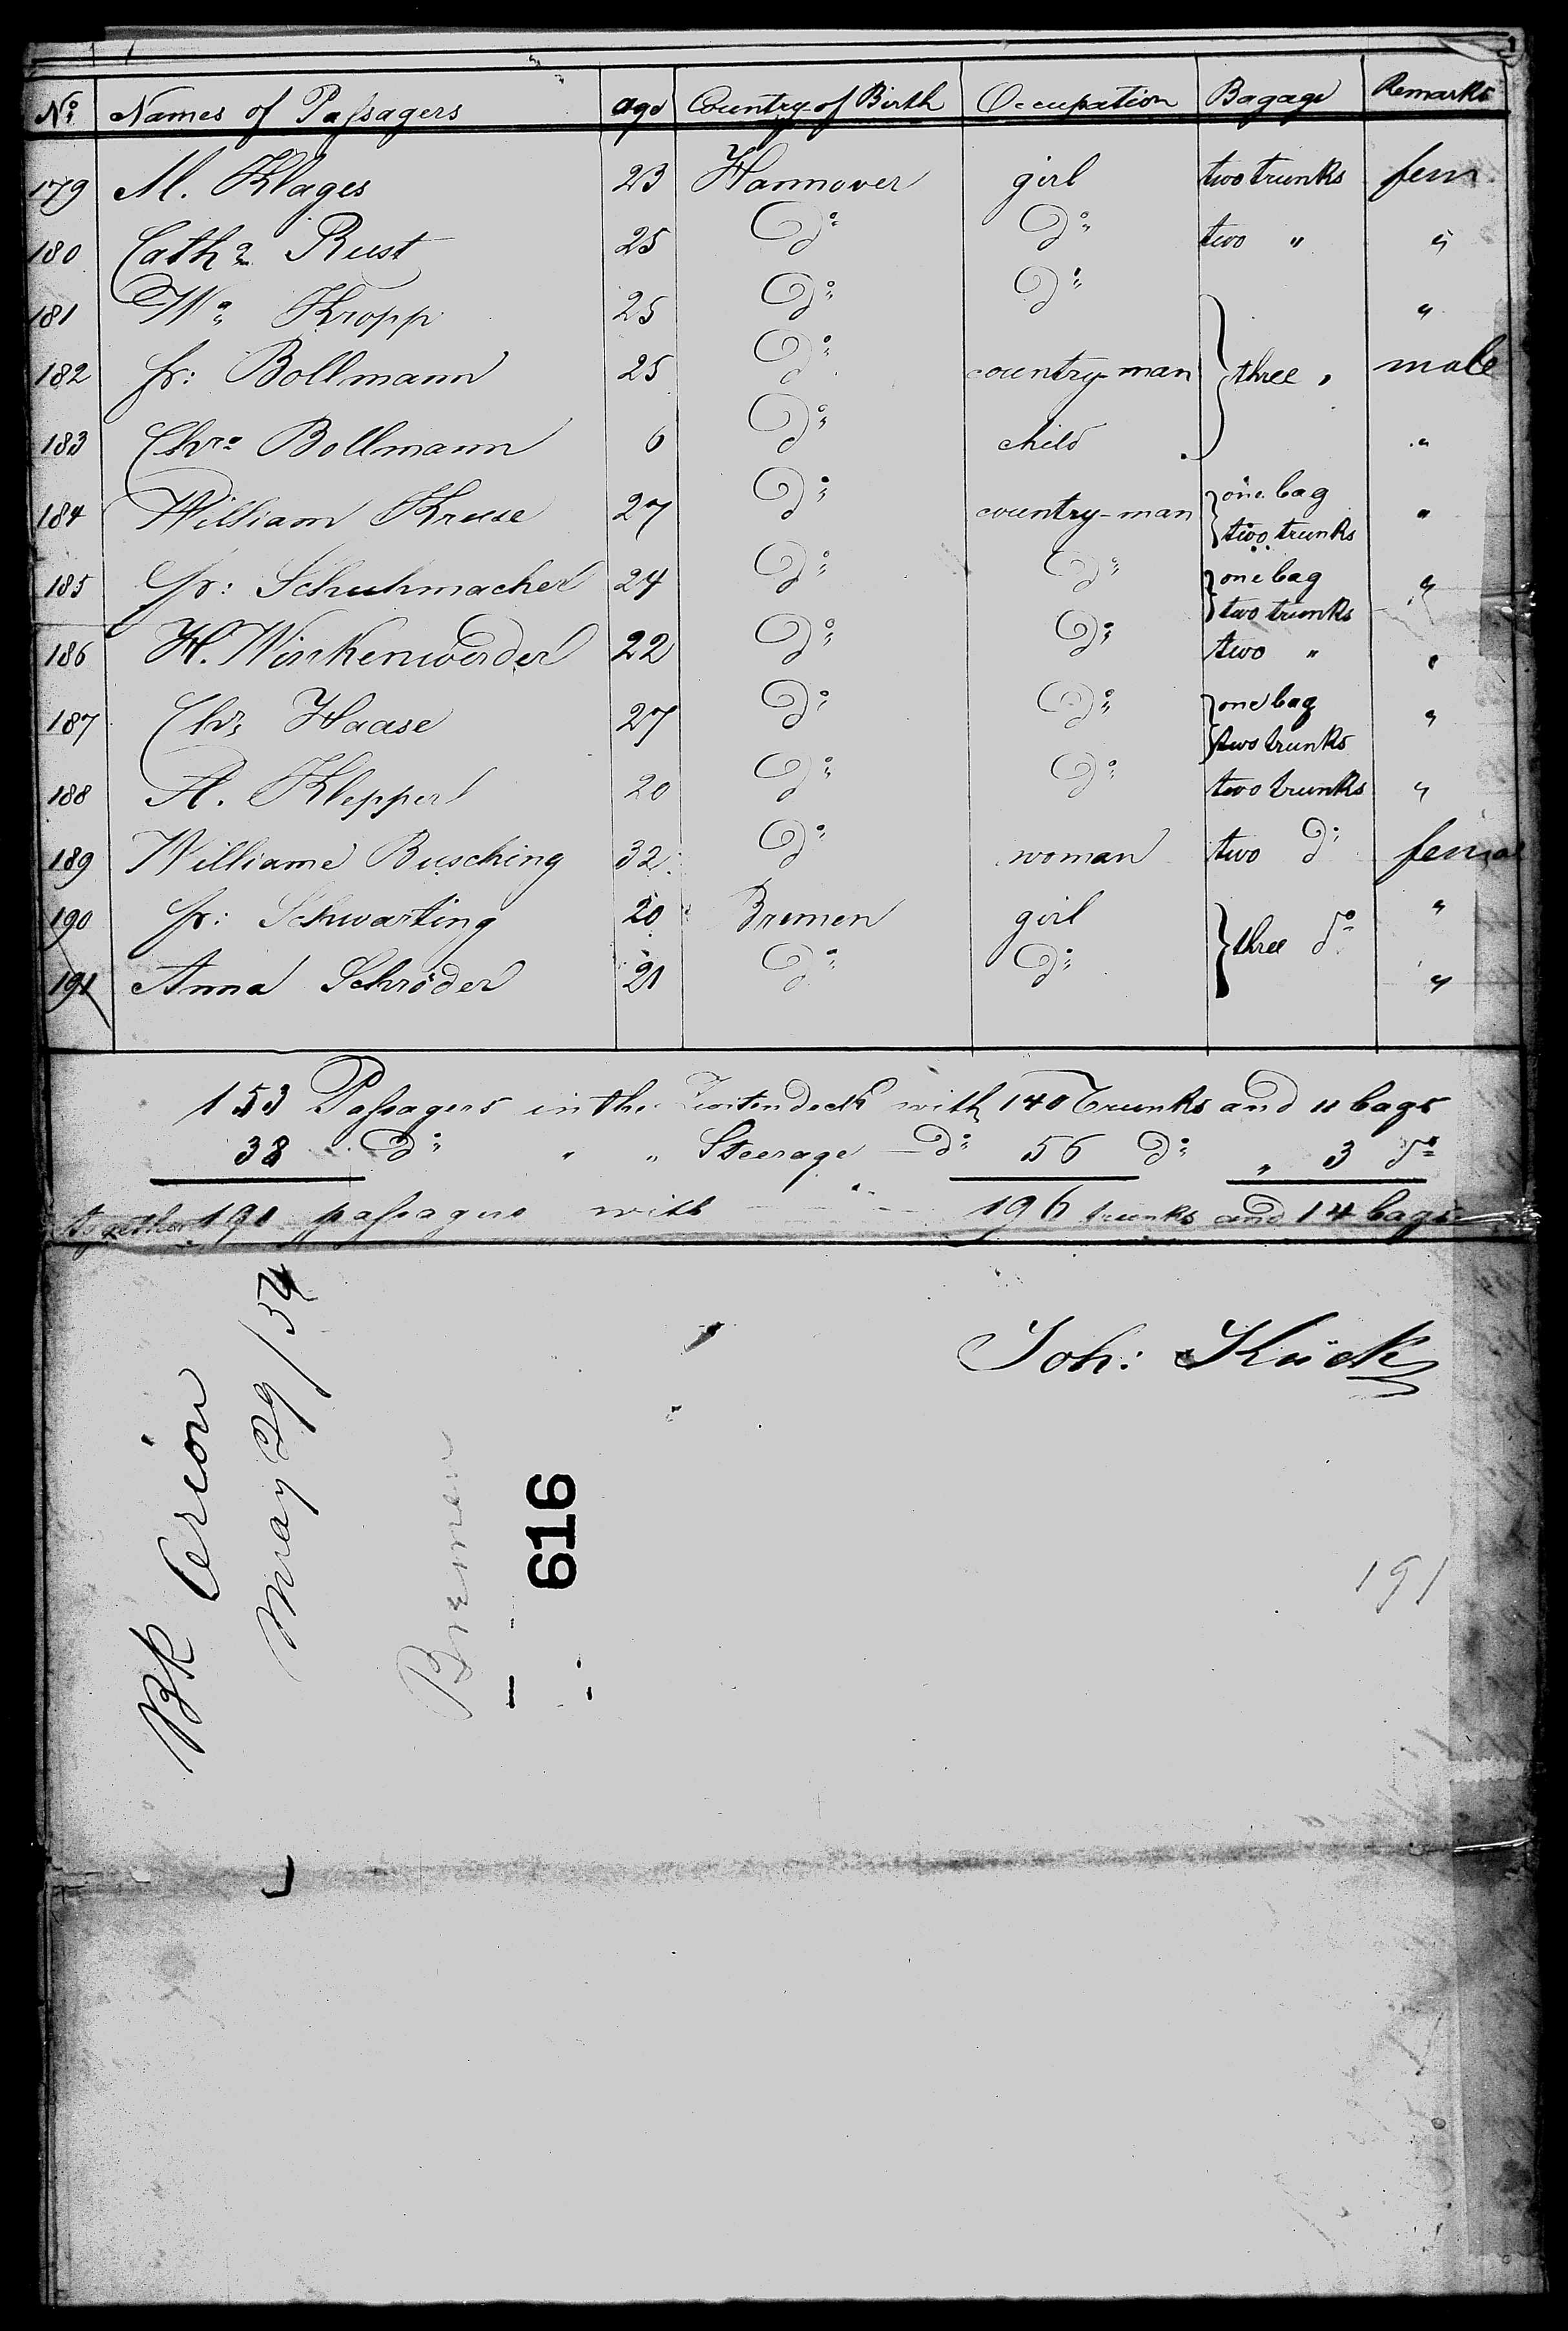 No. Names of Passagers age Country of Birth Occupation Bagage Remarks
179 M. Klages 23 Hannover girl two trunks fem
180 Catha Rust 25 Do. Do. two " "
181 Wa. Kropp 25 Do. Do. "
182 fr: Bollmann 25 Do. country-man three " male
183 Chro Bollmann 6 Do. child "
184 William Kruse 27 Do. country-man one bag two trunks "
185 fr: Schuhmacher 24 Do. Do. one bag two trunks "
186 H. Winkenwerder 22 Do. Do. two " "
187 Chr. Haase 27 Do. Do. one bag two trunks "
188 A. Klepper 20 Do. Do. two trunks "
189 Williame Busching 32 Do. woman two do. femal
190 fr: Schwarting 20 Bremen girl three do. "
191 Anna Schröder 21 Do. Do. "
153 Passagers in the Zwitendeck with 140 Trunks and 11 bags
38 do. " " Steerage do. 56 do. " 3 do.
together 191 passagers with 196 trunks and 14 bags
Joh: Kück
Bk Arion
May 29/54
Bremen
616
191